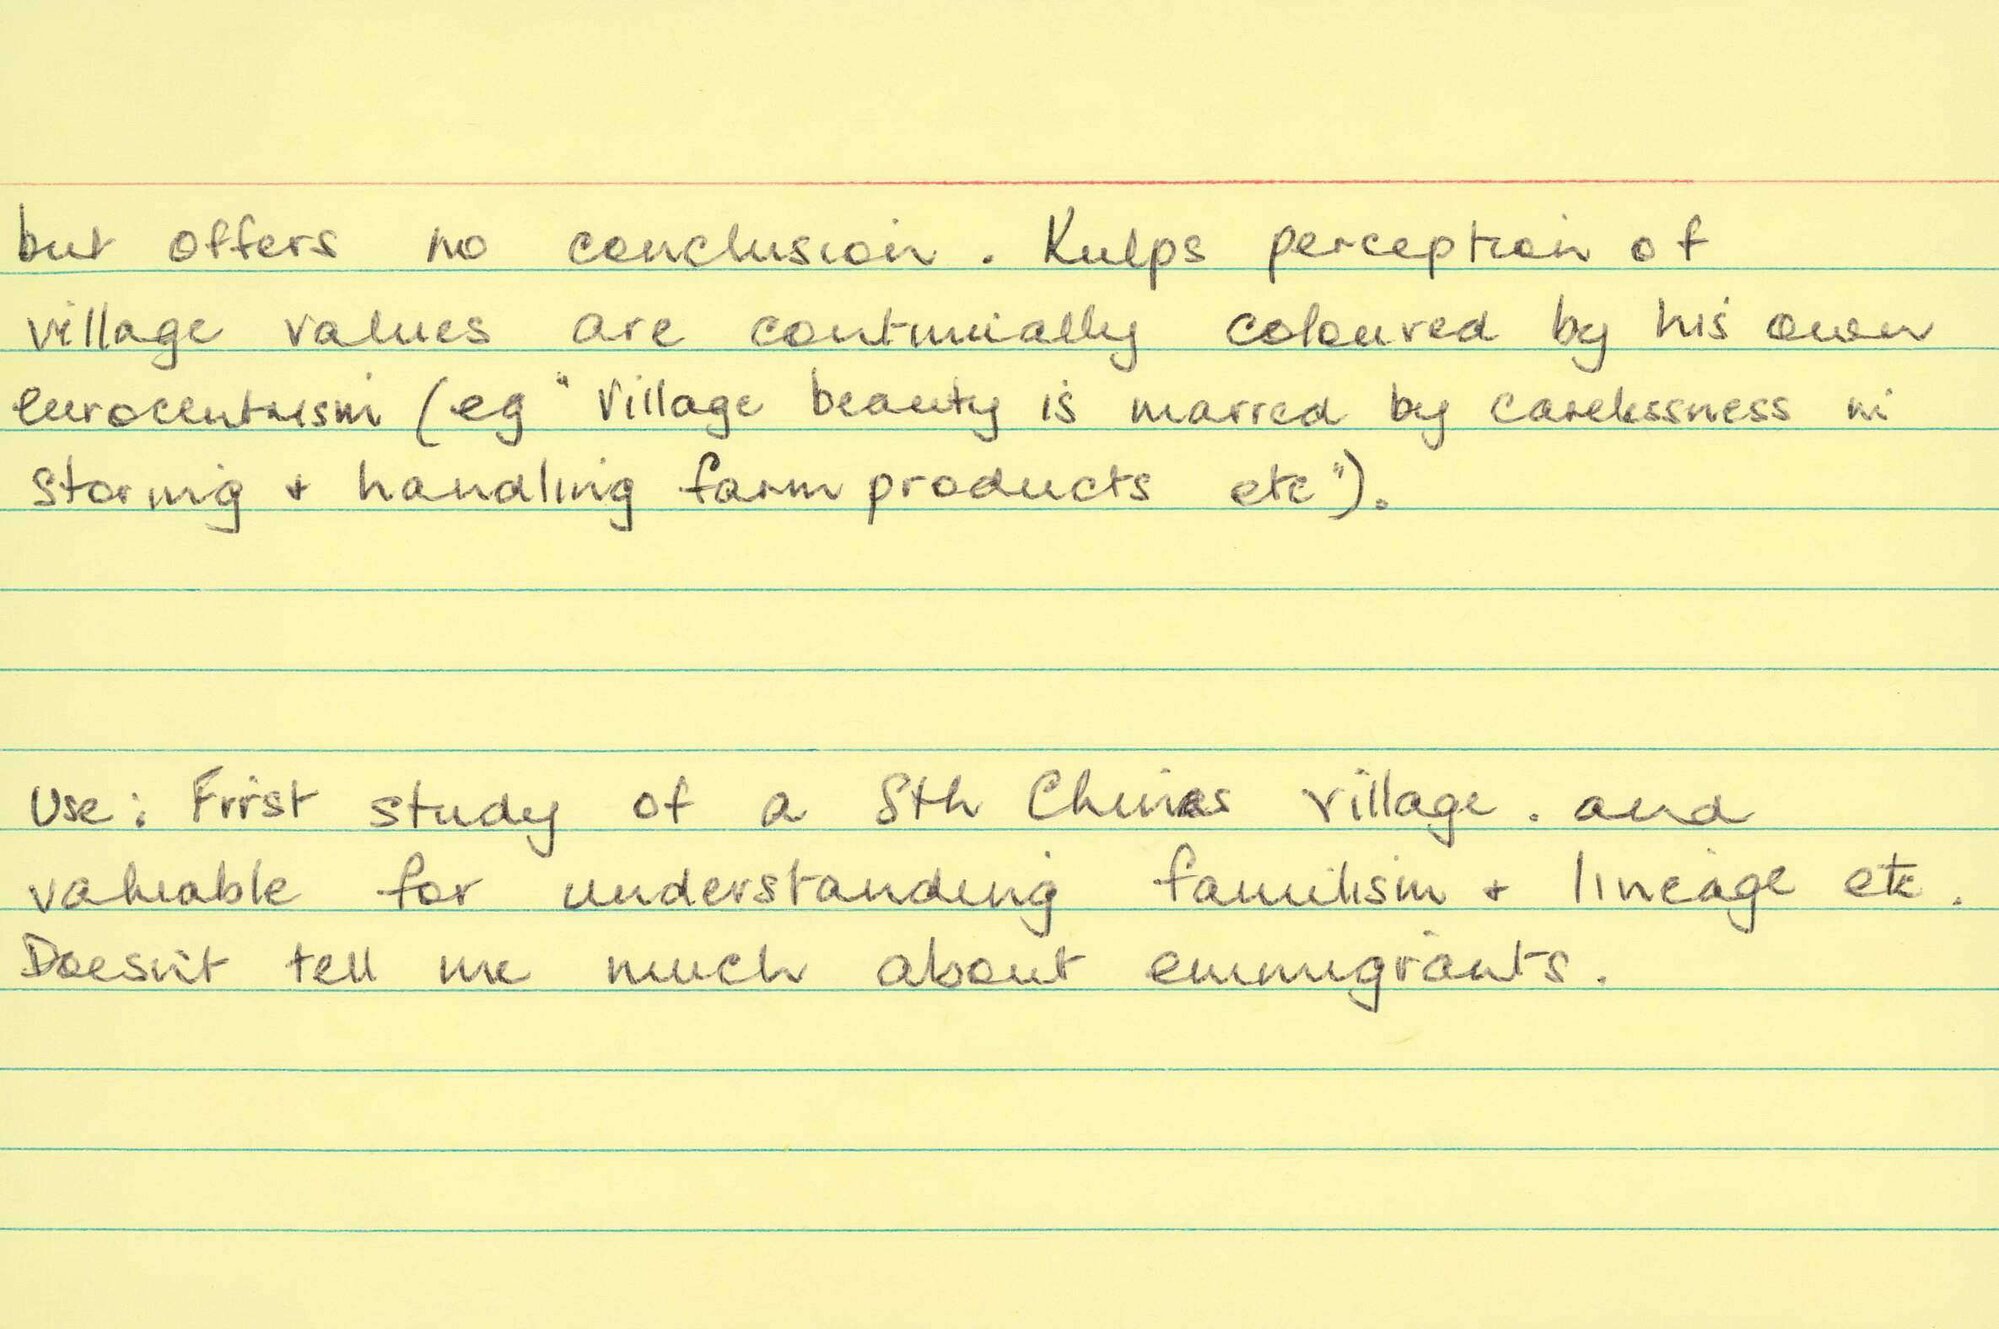 but offers no conclusion. Kulps perception of
village values are continually coloured by his own
eurocentrism (eg "Village beauty is marred by carelessness in
storing + handling farm products etc").
Use: First study of a Sth Chinas village. and
valuable for understanding familism + lineage etc.
Doesn't tell me much about emmigrants.